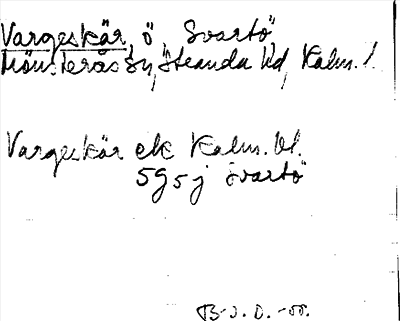 Vargeskär ö Svartö
Mönsterås sn, Stranda hd, Kalm. l.
Vargeskär ek Kalm. bl.
5g5j Svartö